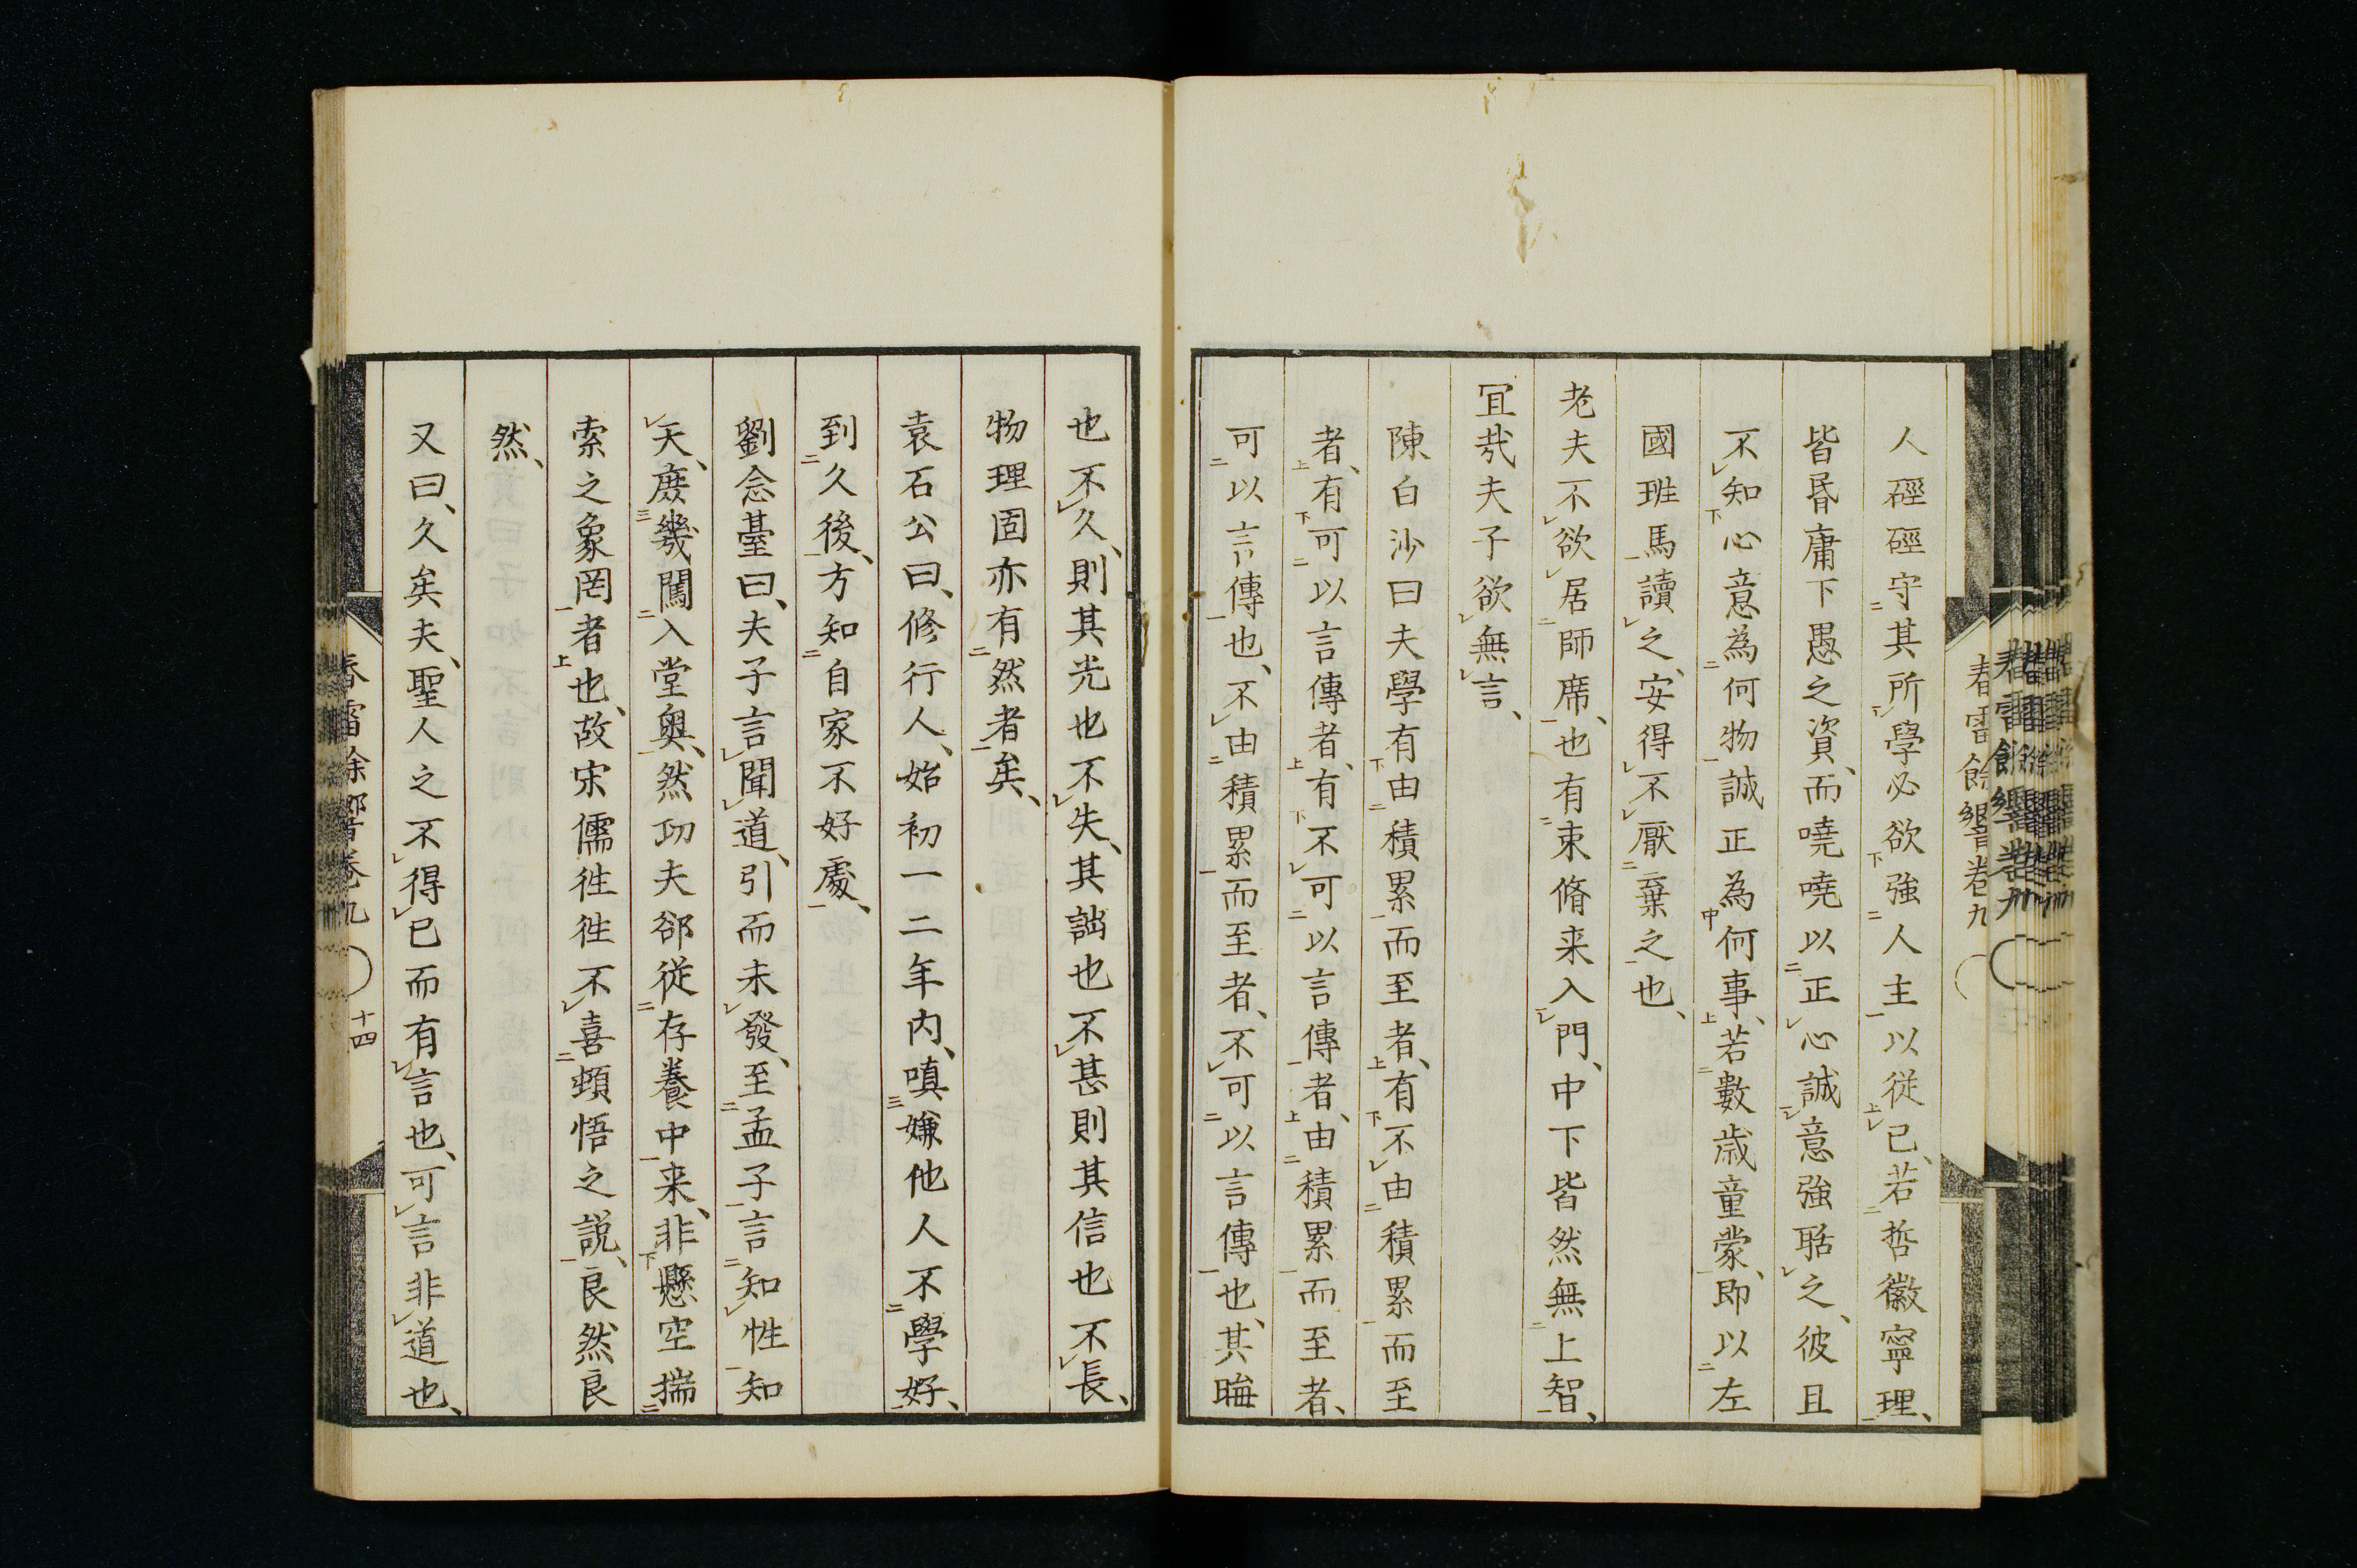 人硜硜守其所學必欲強人主以従已、若哲徽寧理、
皆昬庸下愚之資、而嘵嘵以正心誠意強聒之、彼且
不知心意為何物誠正為何事、若數歳童蒙、即以左
國班馬讀之、安得不厭棄之也、
老夫不欲居師席、也有束脩来入門、中下皆然無上智、
冝㢤夫子欲無言、
陳白沙曰夫學有由積累而至者、有不由積累而至
者、有可以言傳者、有不可以言傳者、由積累而至者、
可以言傳也、不由積累而至者、不可以言傳也、其晦
也不久、則其光也不失、其詘也不甚則其信也不長、
物理固亦有然者矣、
袁石公曰、修行人、始初一二年内、嗔嫌他人不學好、
到久後、方知自家不好處、
劉念臺曰、夫子言聞道、引而未發、至孟子言知性知
天、庶幾闖入堂奥、然功夫郤従存養中来、非懸空揣
索之象罔者也、故宋儒徃徃不喜頓悟之説、良然良
然、
又曰、久矣夫、聖人之不得已而有言也、可言非道也、
春雷餘響卷九
春雷餘響卷九 十四